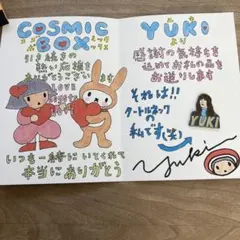 COSMIC
BOX
引き続きの
熱い応援を
ありがとうございます
LOVE
いつも一緒にいてくれて
本当にありがとう
YUKI
より
感謝の気持ちを
込めてお礼の品を
お送りします
それは!!
タートルネックの
私です(笑)
YUKI
Yuki